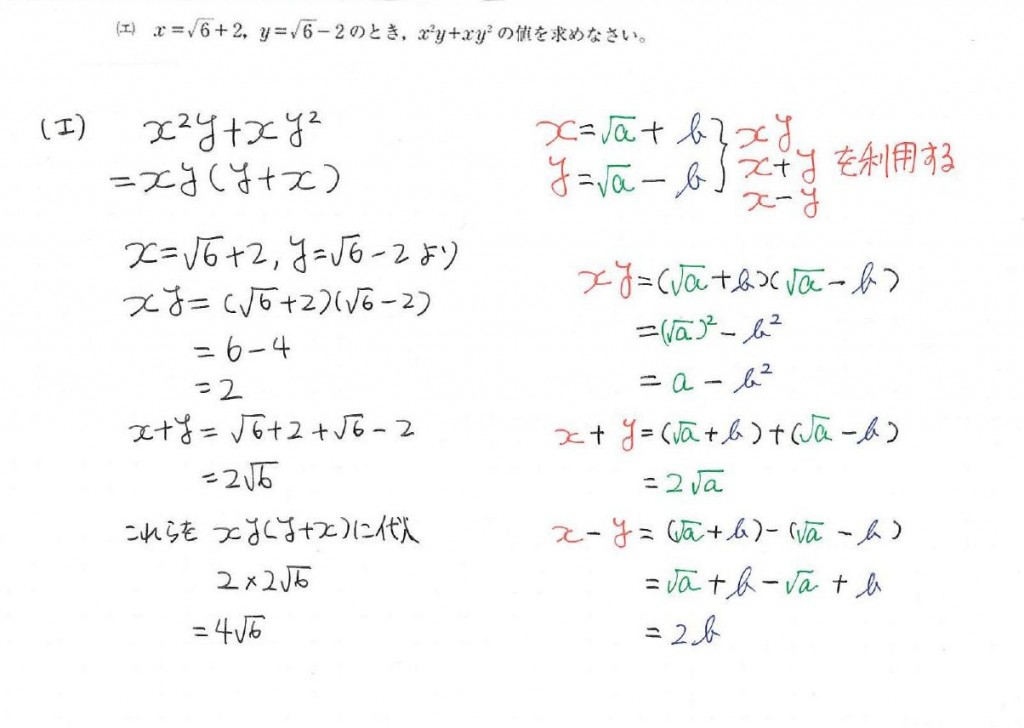 (エ) x=√6+2, y=√6−2のとき, x²y+xy²の値を求めなさい。
(エ) x²y+xy²
=xy(y+x)
x=√6+2, y=√6−2より
xy=(√6+2)(√6−2)
=6−4
=2
x+y=√6+2+√6−2
=2√6
これらを xy(y+x)に代入
2×2√6
=4√6
x=√a+b
y=√a−b
xy
x+y を利用する
x−y
xy=(√a+b)(√a−b)
=(√a)²−b²
=a−b²
x+y=(√a+b)+(√a−b)
=2√a
x−y=(√a+b)−(√a−b)
=√a+b−√a+b
=2b